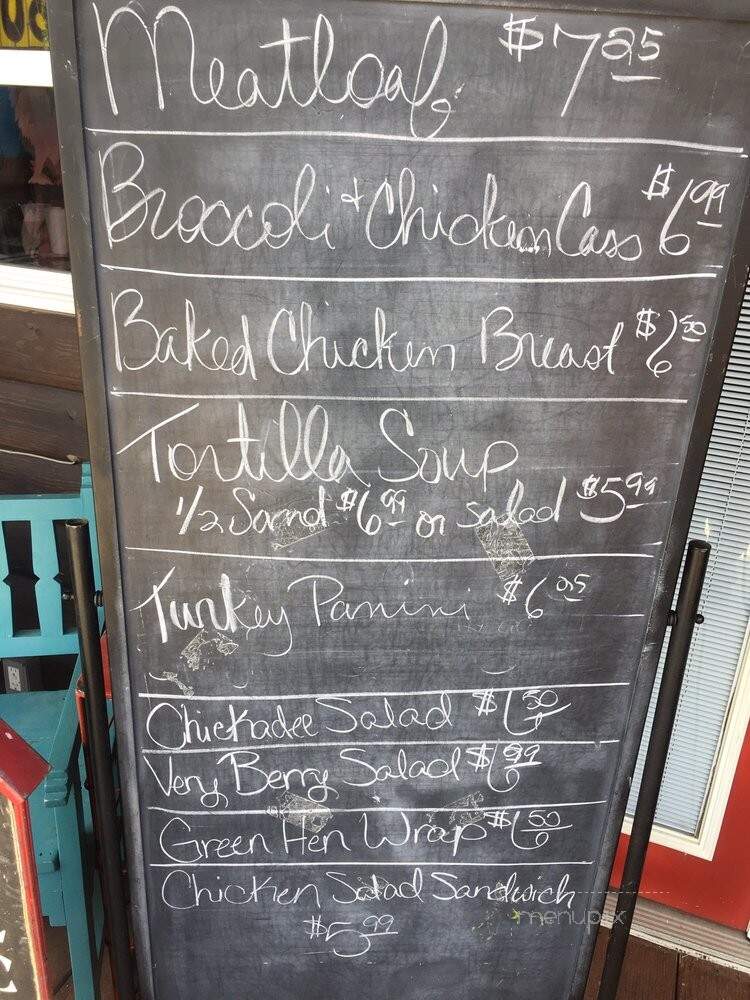 Meatloaf $7.25
Broccoli + Chicken Cass $6.99
Baked Chicken Breast $6.50
Tortilla Soup
1/2 Sand $6.99 or salad $5.99
Turkey Panini $6.25
Chickadee Salad $6.50
Very Berry Salad $6.99
Green Hen Wrap $6.50
Chicken Salad Sandwich
$5.99
menupix